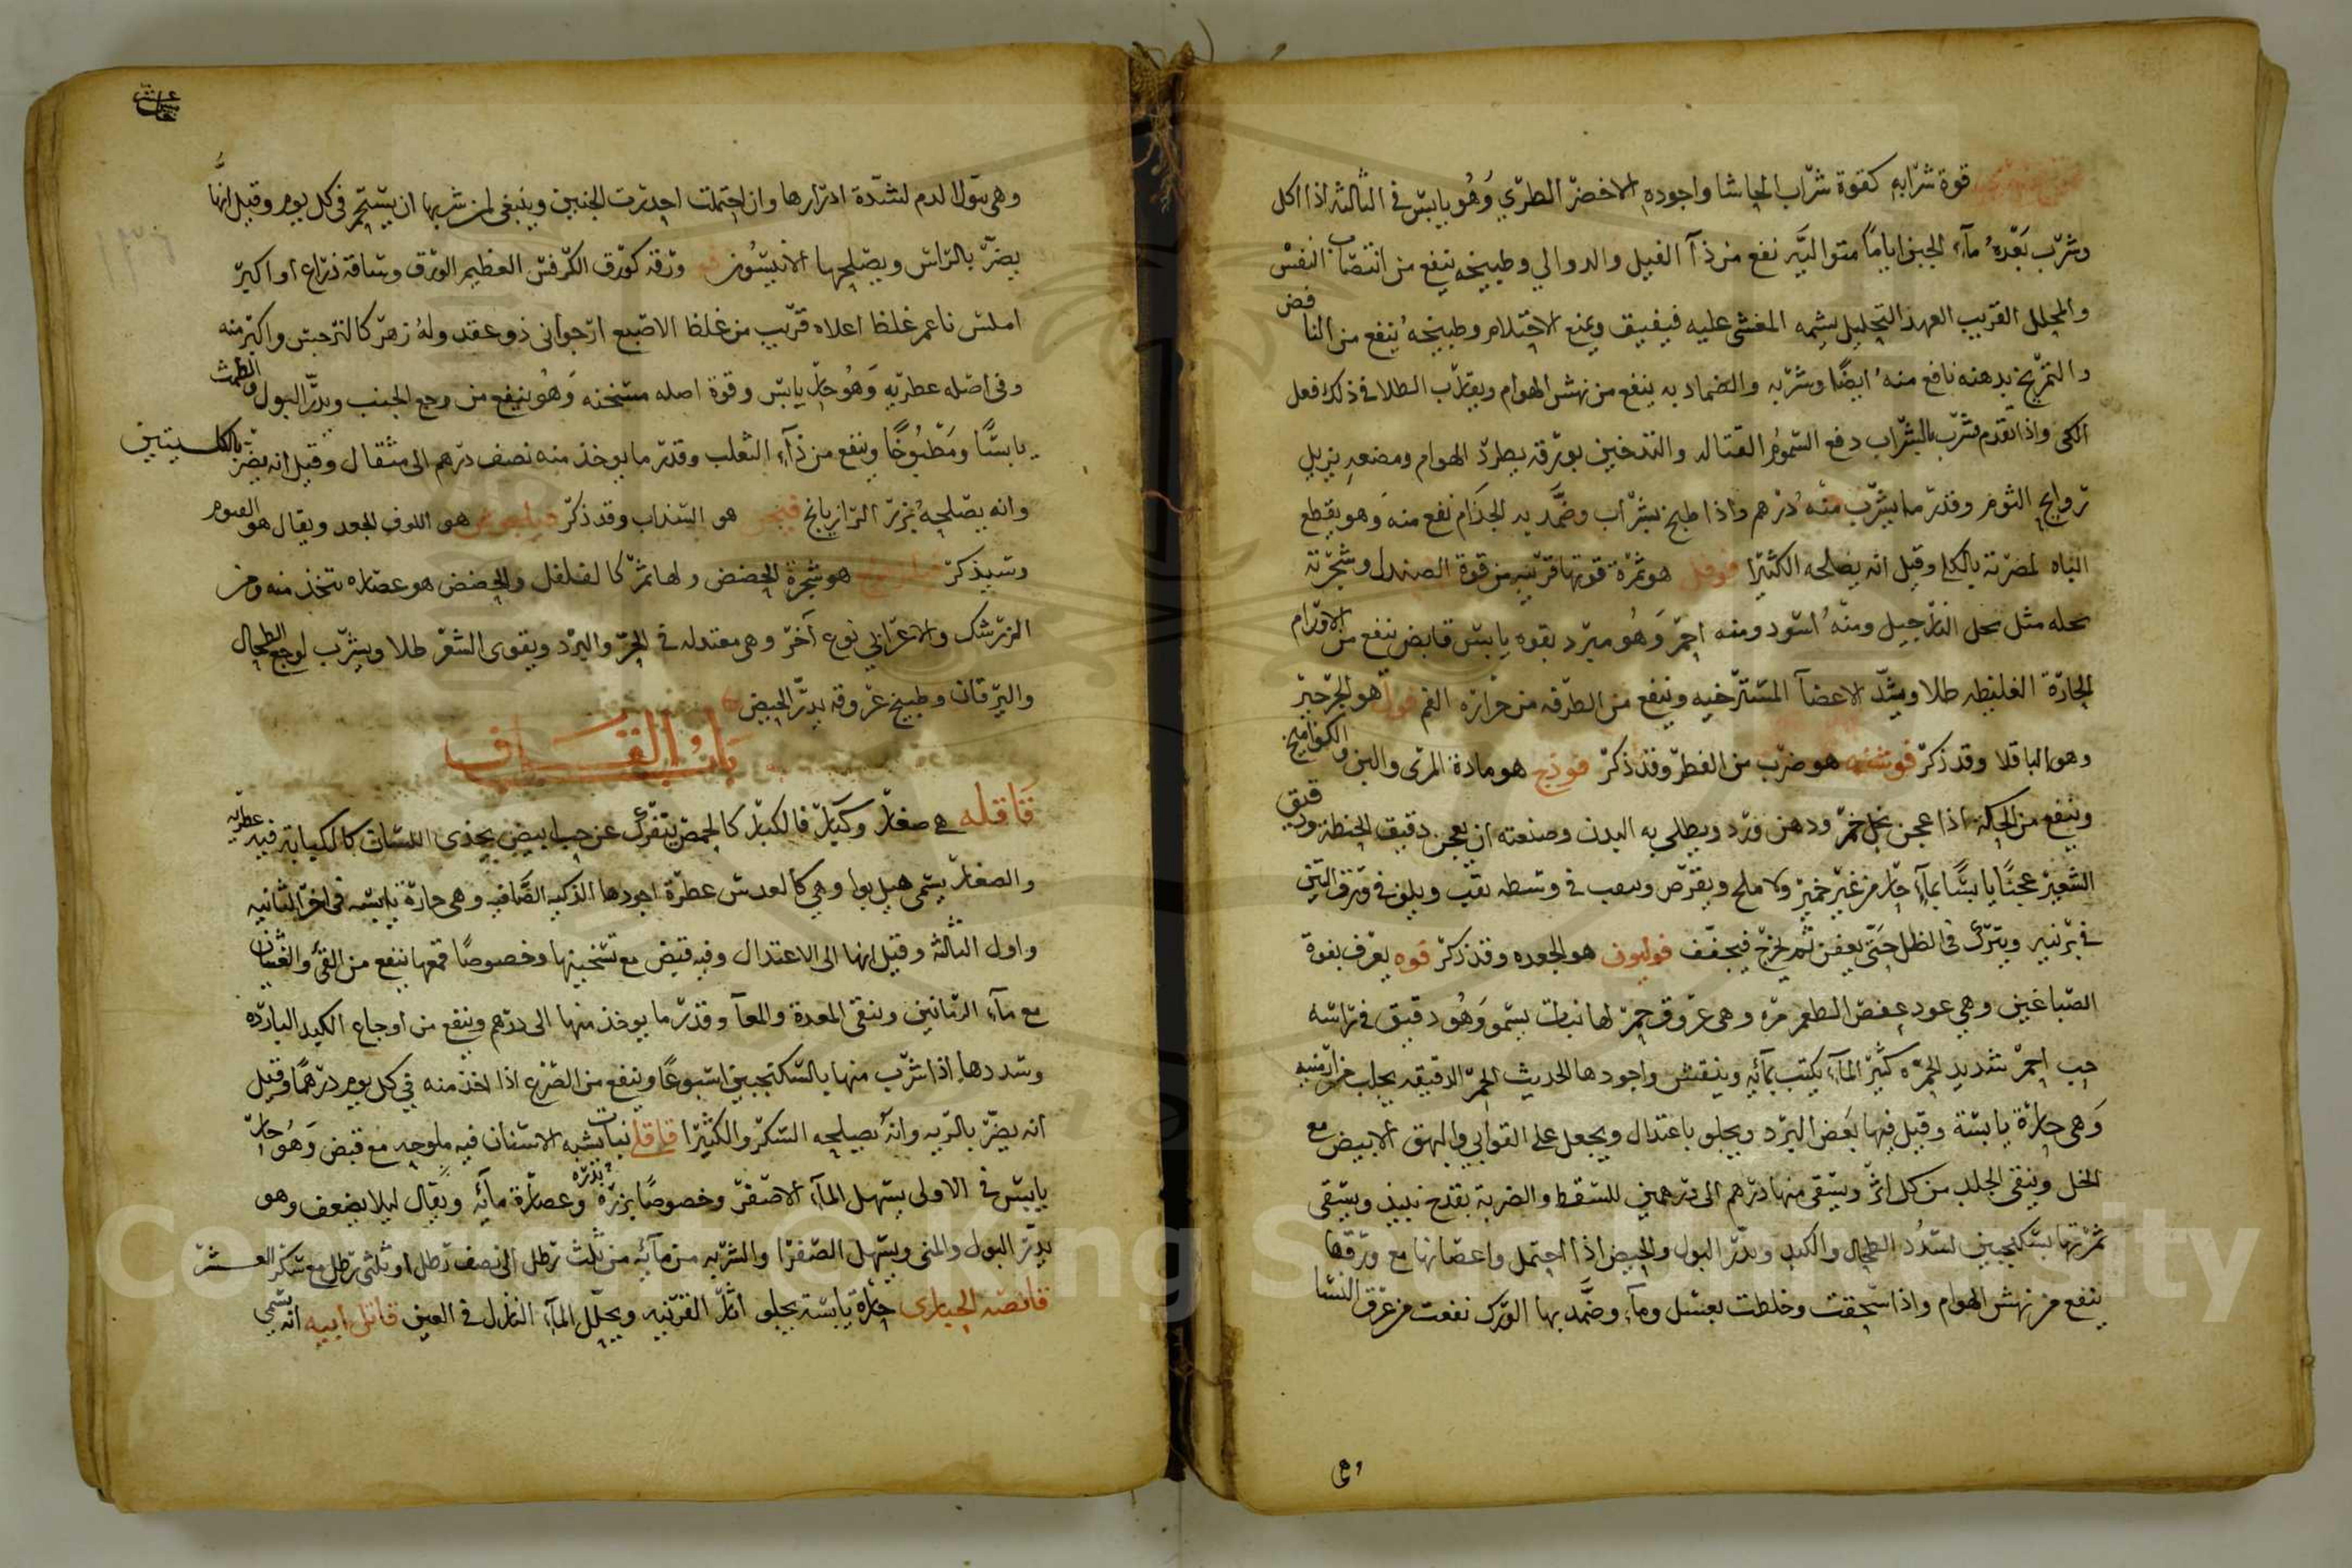 قوة شرابه كقوة شراب الحاشا واجوده الاخضر الطري وهو يابس في الثالثة اذا اكل
وشرب بعده ماء الجبن اياما متواليه نفع من داء الفيل والدوالي وطبيخه ينفع من انتصاب النفس
والمحلل القريب العهد التحليل يشمه المغشى عليه فيفيق ويمنع الاحتلام وطبيخه ينفع من النافض
والتمريخ بدهنه نافع منه ايضا وشربه والضماد به ينفع من نهش الهوام ويقارب الطلا في ذلك فعل
الكى واذا تقدم بشرب بالشراب دفع السموم القتاله والتدخين بورقه يطرد الهوام ومضغه يزيل
روايح الثوم وقدر ما يشرب منه درهم واذا طبخ بشراب وضمد به الجذام نفع منه وهو يقطع
الباه لمضرته بالكلى وقيل انه يصلحه الكثيرا فوفل هو ثمرة قوتها قريبه من قوة الصندل وشجرته
نحله مثل نحل النارجيل ومنه اسود ومنه احمر وهو مبرد بقوه يابس قابض ينفع من الاورام
الحارة الغليظه طلا ويشد الاعضا المسترخيه وينفع من الطرفه من حرارة الفم فول هو الجرجير
وهو الباقلا وقد ذكر فوشنه هو ضرب من الفطر وقد ذكر فوذج هو مادة المرى والبن والكوامخ
وينفع من الحكة اذا عجن بخل خمر ودهن ورد ويطلى به البدن وصنعته ان يعجن دقيق الحنطة ودقيق
الشعير عجنا يابسا بماء حار من غير خمير ولا ملح ويقرص ويثقب في وسطه نقب ويلف في ورق التين
في برنيه ويترك في الظل حتى يعفن ثم يخرج فيجفف فوليون هو الجعده وقد ذكر فوه يعرف بفوة
الصباغين وهي عود عفص الطعم مره وهي عروق حمر لها نبات يسمو وهو دقيق في راسه
حب احمر شديد الحمره كثير الماء يكتب بمائه وينقش واجودها الحديث الحمر الدقيقه يجلب من ارمنيه
وهي حارة يابسة وقيل فيها بعض البرد ويجلو باعتدال ويجعل على القوابي والبهق الابيض مع
الخل وينقي الجلد من كل اثر ويسقى منها درهم الى درهمين للسقطه والضربة بقدح نبيذ ويسقى
ثمرتها بسكنجبين لسدد الطحال والكبد ويدر البول والحيض اذا احتمل واغصانها مع ورقها
ينفع من نهش الهوام واذا سحقت وخلطت بعسل وماء وضمد بها الورك نفعت من عرق النسا
وهي
وهي تبول الدم لشدة ادرارها وان احتملت احدرت الجنين وينبغي لمن شربها ان يستحم في كل يوم وقيل انها
يضر بالراس ويصلحها الانيسون فو ورقه كورق الكرفس العظيم الورق وساقه ذراع او اكبر
املس ناعم غلظ اعلاه قريب من غلظ الاصبع ارجواني ذو عقد وله زهر كالنرجس واكبر منه
وفي اصله عطريه وهو حار يابس وقوة اصله مسخنه وهو ينفع من وجع الجنب ويدر البول والطمث
يابسا ومطبوخا وينفع من داء الثعلب وقدر ما يوخذ منه نصف درهم الى مثقال وقيل انه يضر بالكليتين
وانه يصلحه بزر الرازيانج فيجن هو السذاب وقد ذكر هو اللوف الجعد ويقال هو الفيوم
وسيذكر هو شجرة الحضض ولها ثمر كالفلفل والحضض هو عصاره تتخذ منه ومن
الزرشك والاعرابي نوع آخر وهي معتدله في الحر والبرد ويقوى الشعر طلا ويشرب لوجع الطحال
واليرقان وطبيخ عروقه يدر الحيض
باب القاف
قاقله هي صغار وكبار فالكبار كالحمص يتفرك عن حب ابيض يحذى اللسان كالكبابة فيه عطريه
والصغار يسمى هيل بوا وهي كالعدس عطرة اجودها الذكيه الصافيه وهي حارة يابسه في اخر الثانيه
واول الثالثه وقيل انها الى الاعتدال وفيه قبض مع تسخينها وخصوصا قمعها ينفع من القئ والغثيان
مع ماء الرمانين وتنقى المعدة والمعا وقدر ما يوخذ منها الى درهم وينفع من اوجاع الكبد البارده
وسددها اذا شرب منها بالسكنجبين اسبوعا وينفع من الصرع اذا اخذ منه في كل يوم درهما وقيل
انه يضر بالريه وانه يصلحه السكر والكثيرا قاقلى نبات يشبه الاشنان فيه ملوحه مع قبض وهو حار
يابس في الاولى يسهل الماء الاصفر وخصوصا بزره وعصارة مائه ويقال ليلا يضعف وهو
بذره
يدر البول والمنى ويسهل الصفرا والشربه من مائه من ثلث رطل الى نصف رطل او ثلثي رطل مع سكر العشر
قانصه الحبارى حارة يابسة يجلو اثار القرنيه ويحلل الماء النازل في العين قاتل ابيه انه يسمى